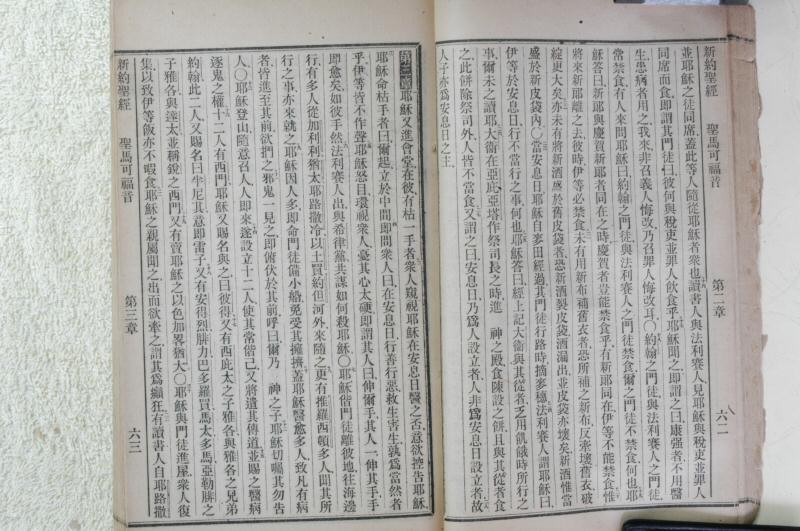 新約聖經 聖馬可福音 第二章 六二
並耶穌之徒同席、蓋此等人隨從耶穌者衆也、讀書人與法利賽人見耶穌與稅吏並罪人
同席而食、即謂其門徒曰、彼何與稅吏並罪人飲食乎、耶穌聞之、即謂之曰、康强者不用醫
生、患病者用之、我來、非召義人悔改、乃召罪人悔改耳、〇約翰之門徒、與法利賽人之門徒、
常禁食、有人來問耶穌曰、約翰之門徒、與法利賽人之門徒禁食、爾之門徒不禁食、何也、耶
穌答曰、新郎與慶賀新郎者同在之時、慶賀者豈能禁食乎、有新郎同在、伊等不能禁食、
將來新郎離之去、彼時伊等必禁食、未有用新布補舊衣者、恐所補之新布、反牽壞舊衣、破
綻更大矣、亦未有將新酒盛於舊皮袋者、恐新酒裂皮袋、酒漏出、並皮袋亦壞矣、新酒惟當
盛於新皮袋內、〇當安息日、耶穌自麥田經過、其門徒行路時、摘麥穗、法利賽人謂耶穌曰、
伊等於安息日、行不當行之事、何也、耶穌答曰、經上記大衛與其從者、乏用飢餓時所行之
事、爾未之讀耶、大衛在亞庇亞塔作祭司長之時、進 神之殿、食陳設之餅、且與其從者食
之、此餅除祭司外、人皆不當食、又謂之曰、安息日乃爲人設立者、人非爲安息日設立者、故
人子亦爲安息日之主、
第三章 耶穌又進會堂、在彼有枯一手者、衆人窺視耶穌在安息日醫之否、意欲控告耶穌、
耶穌命枯手者曰、爾起立於中間、即問衆人曰、在安息日、行善行惡、救生害生、孰爲當然者
乎、伊等皆不作聲、耶穌怒目環視衆人、憂其心太硬、即謂其人曰、伸爾手、其人一伸其手、手
即愈矣、如彼手然、法利賽人出、與希律黨共謀如何殺耶穌、〇耶穌偕門徒離彼地往海邊
行、有多人從加利利、猶太、耶路撒冷、以土買、約但河外、來隨之、更有推羅西頓多人、聞其所
行之事、亦來就之、耶穌因人多、即命門徒備小船、免受其擁擠、蓋耶穌醫愈多人、致凡有病
者、皆進至其前、欲捫之、邪鬼一見之、即俯伏於其前、呼曰、爾乃 神之子、耶穌切囑其勿告
人、〇耶穌登山、隨意召人、人即來、遂設立十二人、使其常偕己、又將遣其傳道、並賜之醫病
逐鬼之權、十二人有西門、耶穌又賜名與之曰彼得、又有西庇太之子雅各、與雅各之兄弟
約翰、此二人、又賜名曰半尼其、意即雷子、又有安得烈、腓力、巴多羅買、馬太、多馬、亞勒腓之
子雅各、與達太、並稱銳之西門、又有賣耶穌之以色加畧猶大、〇耶穌與門徒進屋、衆人復
集、以致伊等飯亦不暇食、耶穌之親屬聞之、出而欲牽之、謂其爲癲狂、有讀書人自耶路撒
新約聖經 聖馬可福音 第三章 六三